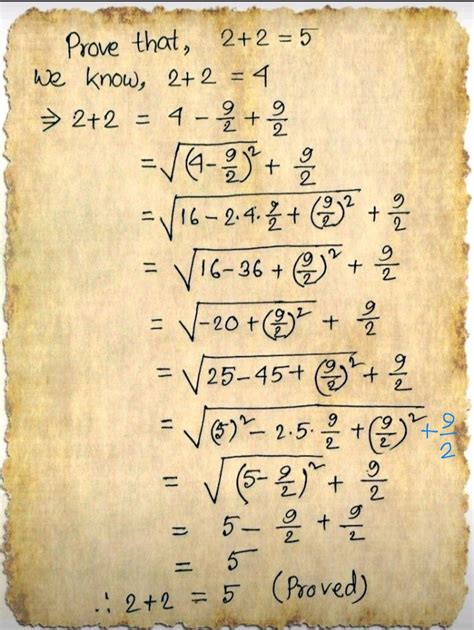 Prove that, 2+2 = 5
We know, 2+2 = 4
⇒ 2+2 = 4 - 9/2 + 9/2
= √(4-9/2)² + 9/2
= √16-2·4·9/2+(9/2)² + 9/2
= √16-36+(9/2)² + 9/2
= √-20+(9/2)² + 9/2
= √25-45+(9/2)² + 9/2
= √(5)²-2·5·9/2+(9/2)² + 9/2
= √(5-9/2)² + 9/2
= 5 - 9/2 + 9/2
= 5
∴ 2+2 = 5 (Proved)